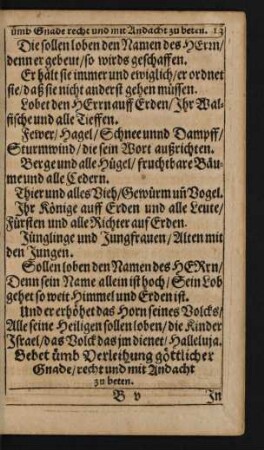 umb Gnade recht und mit Andacht zu beten. 13
Die sollen loben den Namen des HErrn/
denn er gebeut/ so wirds geschaffen.
Er hält sie immer und ewiglich/ er ordnet
sie/ daß sie nicht anderst gehen müssen.
Lobet den HErrn auff Erden/ Ihr Wal-
fische und alle Tieffen.
Fewer/ Hagel/ Schnee unnd Dampff/
Sturmwind/ die sein Wort außrichten.
Berge und alle Hügel/ fruchtbare Bäu-
me und alle Cedern.
Thier und alles Vieh/ Gewürm uñ Vogel.
Ihr Könige auff Erden und alle Leute/
Fürsten und alle Richter auf Erden.
Jünglinge und Jungfrauen/ Alten mit
den Jungen.
Sollen loben den Namen des HERrn/
Denn sein Name allein ist hoch/ Sein Lob
gehet so weit Himmel und Erden ist.
Und er erhöhet das Horn seines Volcks/
Alle seine Heiligen sollen loben/ die Kinder
Israel/ das Volck das jm dienet/ Halleluja.
Gebet umb Verleihung göttlicher
Gnade/ recht und mit Andacht
zu beten.
B v In